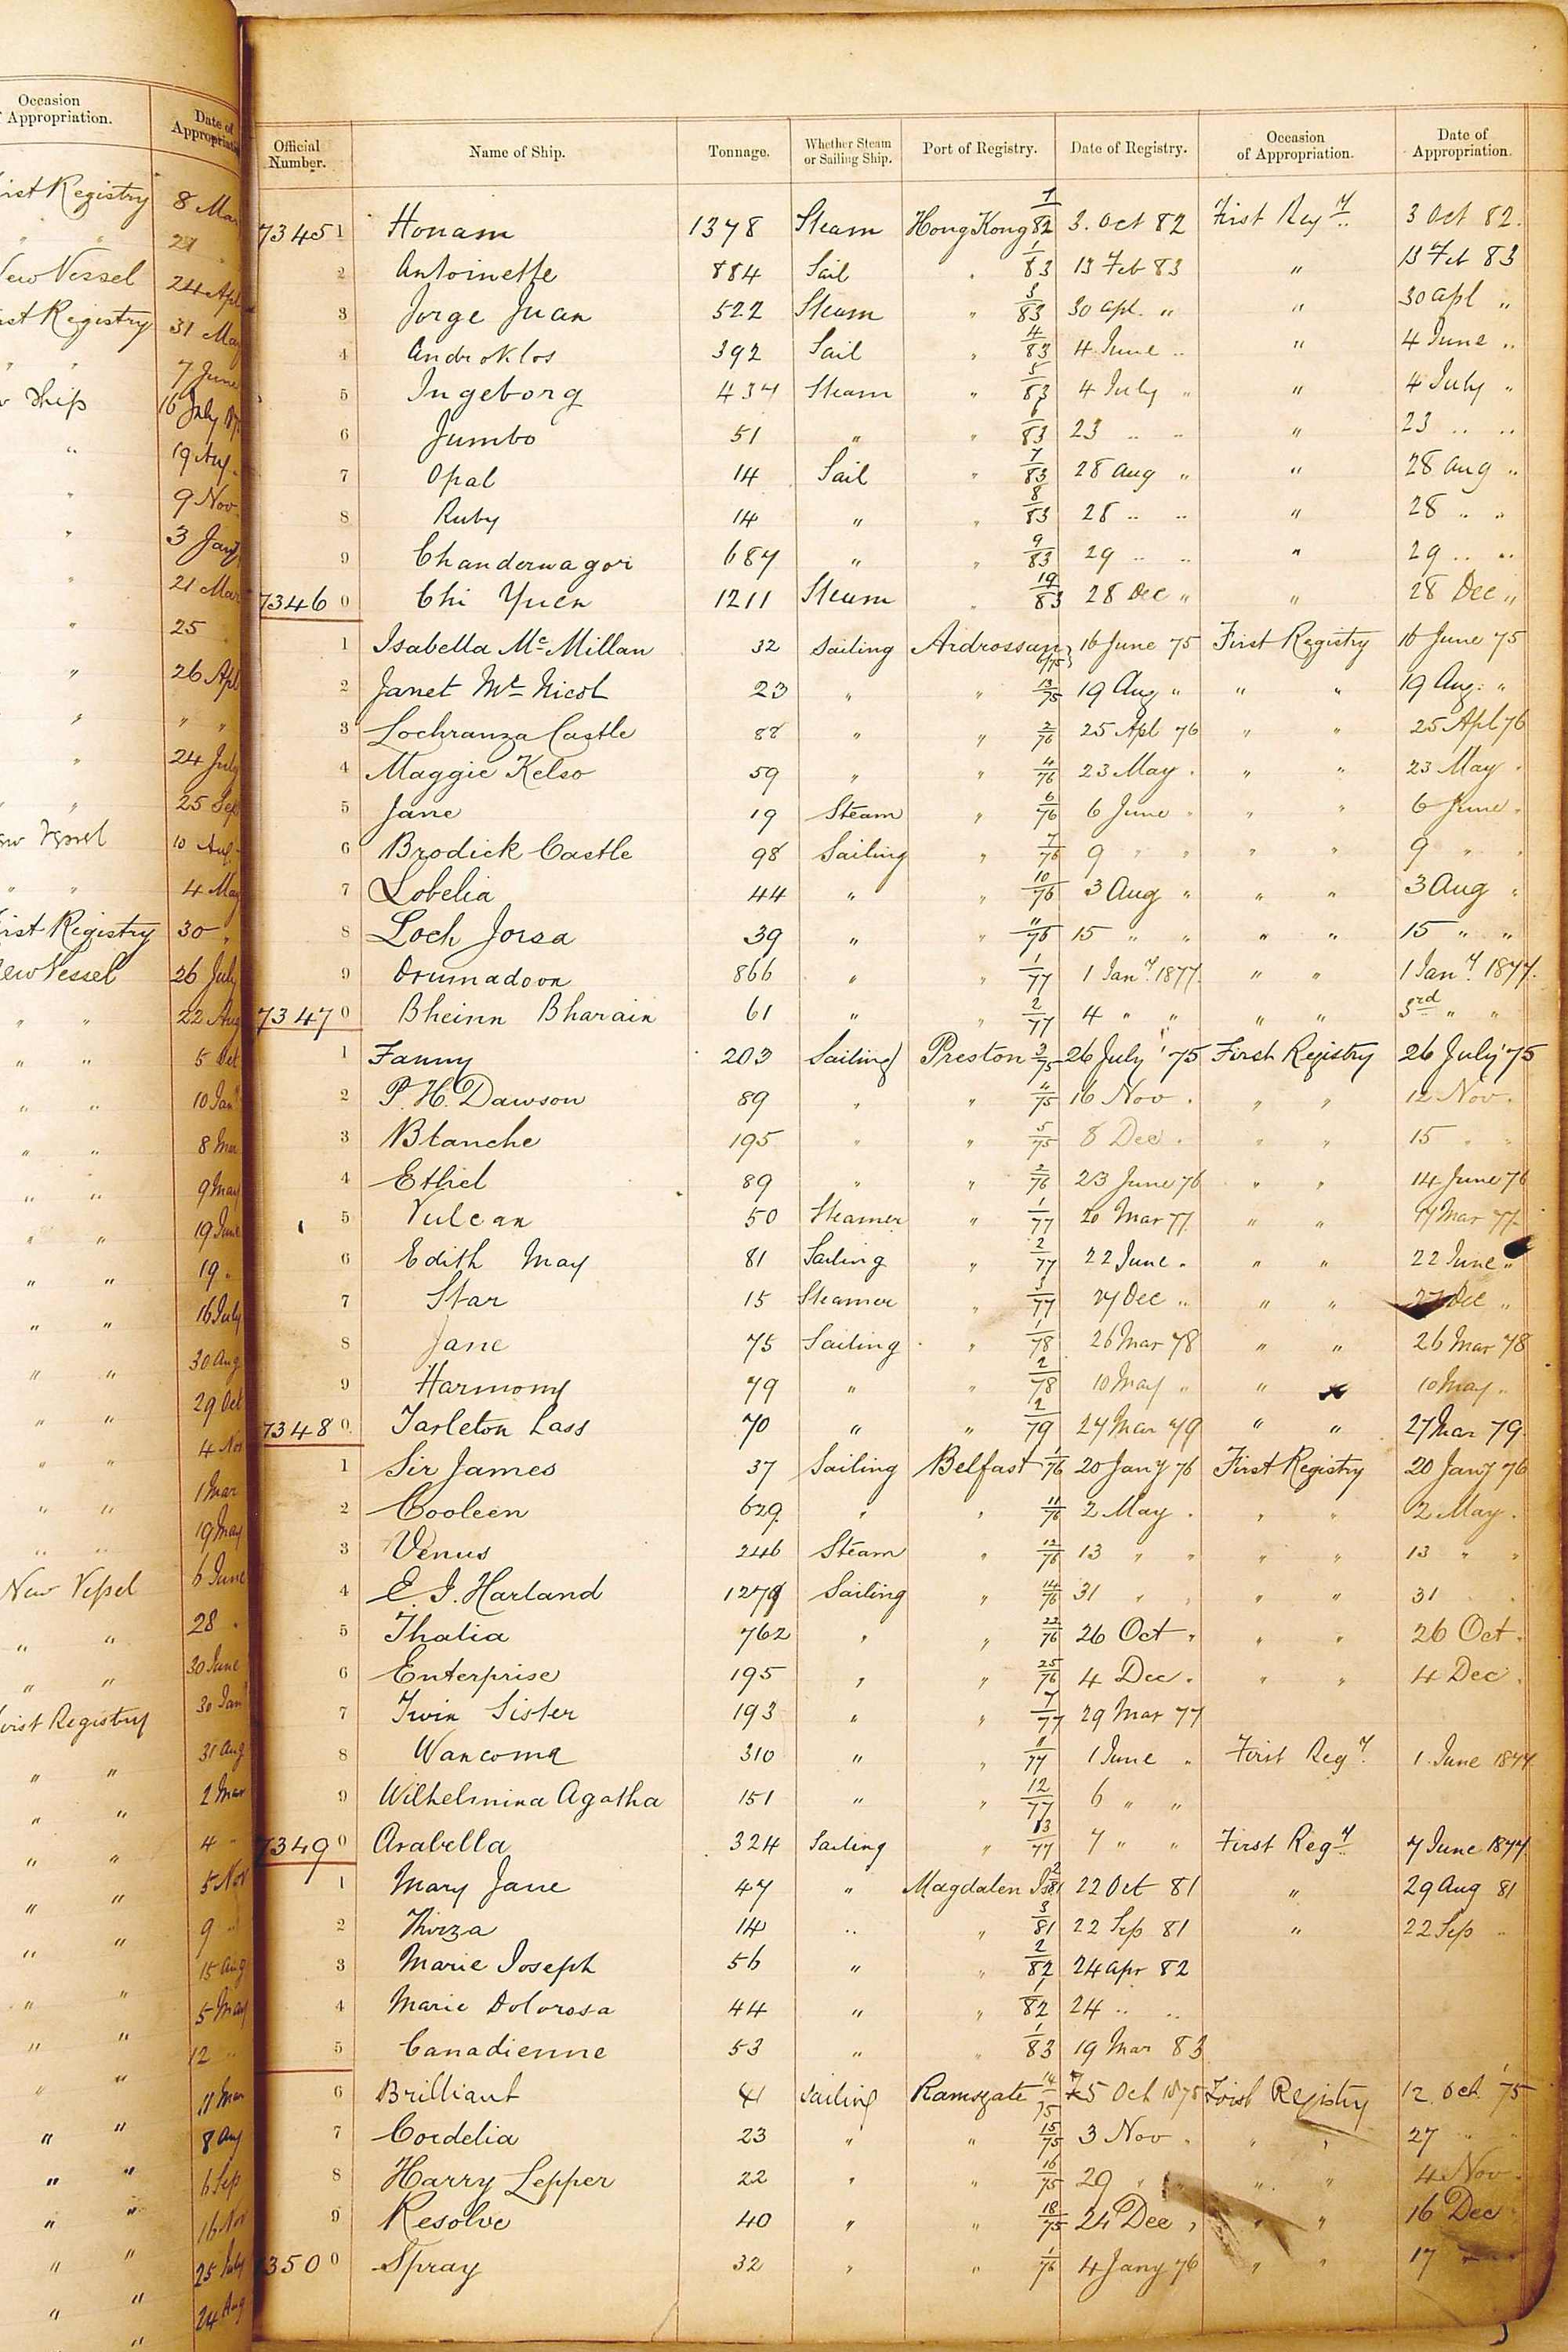 Occasion
Appropriation.
Date of
Appropriation
Registry 8 Mar
Vessel 24 Apl
Registry 31 May
7 June
Ship 16 July
19 Aug.
9 Nov.
3 Jany
21 Mar
25
26 Apl
" "
24 July
25 Sep
10 Aug.
" " 4 May
Registry 30 "
Vessel 26 July
" " 22 Aug
" " 5 Oct
" " 10 Jany
" " 8 Mar
" " 9 May
" " 19 June
" " 19 "
" " 16 July
" " 30 Aug
" " 29 Oct
" " 4 Nov
" " 1 Mar
" " 19 May
New Vessel 6 June
" " 28 "
" " 30 June
Registry 30 Jany
" " 31 Aug
" " 2 Mar
" " 4 "
" " 5 Nov
" " 9 "
" " 15 Aug
" " 5 May
" " 12 "
" " 11 Mar
" " 8 Aug
" " 6 Sep
" " 16 Nov
" " 25 July
" " 24 Aug
Official Number. Name of Ship. Tonnage. Whether Steam or Sailing Ship. Port of Registry. Date of Registry. Occasion of Appropriation. Date of Appropriation.
73451 Honam 1378 Steam Hong Kong 7/82 3. Oct 82 First Regy 3 Oct 82.
2 Antoinette 884 Sail " 1/83 13 Feb 83 " 13 Feb 83
3 Jorge Juan 522 Steam " 3/83 30 apl. " " 30 apl "
4 Androklos 392 Sail " 4/83 4 June " " 4 June "
5 Ingeborg 434 Steam " 5/83 4 July " " 4 July "
6 Jumbo 51 " " 6/83 23 " " " 23 " "
7 Opal 14 Sail " 7/83 28 aug " " 28 aug "
8 Ruby 14 " " 8/83 28 " " " 28 " "
9 Chandernagor 687 " " 9/83 29 " " " 29 " "
73460 Chi Yuen 1211 Steam " 19/83 28 Dec " " 28 Dec "
1 Isabella McMillan 32 Sailing Ardrossan 6/75 16 June 75 First Registry 16 June 75
2 Janet McNicol 23 " " 13/75 19 Aug " " " 19 Aug. "
3 Lochranza Castle 88 " " 2/76 25 Apl 76 " " 25 Apl 76
4 Maggie Kelso 59 " " 4/76 23 May " " " 23 May "
5 Jane 19 Steam " 6/76 6 June " " " 6 June "
6 Brodick Castle 98 Sailing " 7/76 9 " " " " 9 " "
7 Lobelia 44 " " 10/76 3 Aug " " " 3 Aug "
8 Loch Jorsa 39 " " 11/76 15 " " " " 15 " "
9 Drumadoon 866 " " 1/77 1 Jany. 1877. " " 1 Jany. 1877.
73470 Bheinn Bharain 61 " " 2/77 4 " " " " 3rd " "
1 Fanny 203 Sailing Preston 3/75 26 July '75 First Registry 26 July '75
2 P. H. Dawson 89 " " 4/75 16 Nov. " " 12 Nov.
3 Blanche 195 " " 5/75 8 Dec. " " 15 " "
4 Ethel 89 " " 2/76 23 June 76 " " 14 June 76
5 Vulcan 50 Steamer " 1/77 20 Mar 77. " " 17 Mar 77.
6 Edith May 81 Sailing " 2/77 22 June " " " 22 June "
7 Star 15 Steamer " 3/77 27 Dec " " " 27 Dec "
8 Jane 75 Sailing " 1/78 26 Mar 78 " " 26 Mar 78
9 Harmony 79 " " 2/78 10 May " " 10 May "
73480 Tarleton Lass 70 " " 2/79 27 Mar 79 " " 27 Mar 79.
1 Sir James 37 Sailing Belfast 1/76 20 Jany 76 First Registry 20 Jany 76
2 Cooleen 629. " " 11/76 2 May . " " 2 May .
3 Venus 246 Steam " 12/76 13 " " " " 13 " "
4 E. J. Harland Sailing " 14/76 31 " " " " 31 " "
5 Thalia 762 " " 22/76 26 Oct " " " 26 Oct.
6 Enterprise 195 " " 25/76 4 Dec. " " 4 Dec.
7 Twin Sister 193 " " 7/77 29 Mar 77
8 Wancoma 310 " " 11/77 1 June " First Regy. 1. June 1877
9 Wilhelmina Agatha 151 " " 12/77 6 " "
73490 Arabella 324 Sailing " 13/77 7 " " First Regy. 7 June 1877
1 Mary Jane 47 " Magdalen Isd 2/81 22 Oct 81 " 29 Aug 81
2 Thirza 14 " " 3/81 22 Sep 81 " 22 Sep "
3 Marie Joseph 56 " " 2/82 24 apr 82
4 Marie Dolorosa 44 " " 1/82 24 " "
5 Canadienne 53 " " 1/83 19 Mar 83
6 Brilliant 41 Sailing Ramsgate 14/75 5 Oct 1875 First Registry 12. Oct. '75
7 Cordelia 23 " " 15/75 3 Nov " " " 27 " "
8 Harry Lepper 22 " " 16/75 29 " " " " 4 Nov.
9 Resolve 40 " " 18/75 24 Dec " " " 16 Dec
73500 Spray 32 " " 1/76 4 Jany 76 " " 17 " "